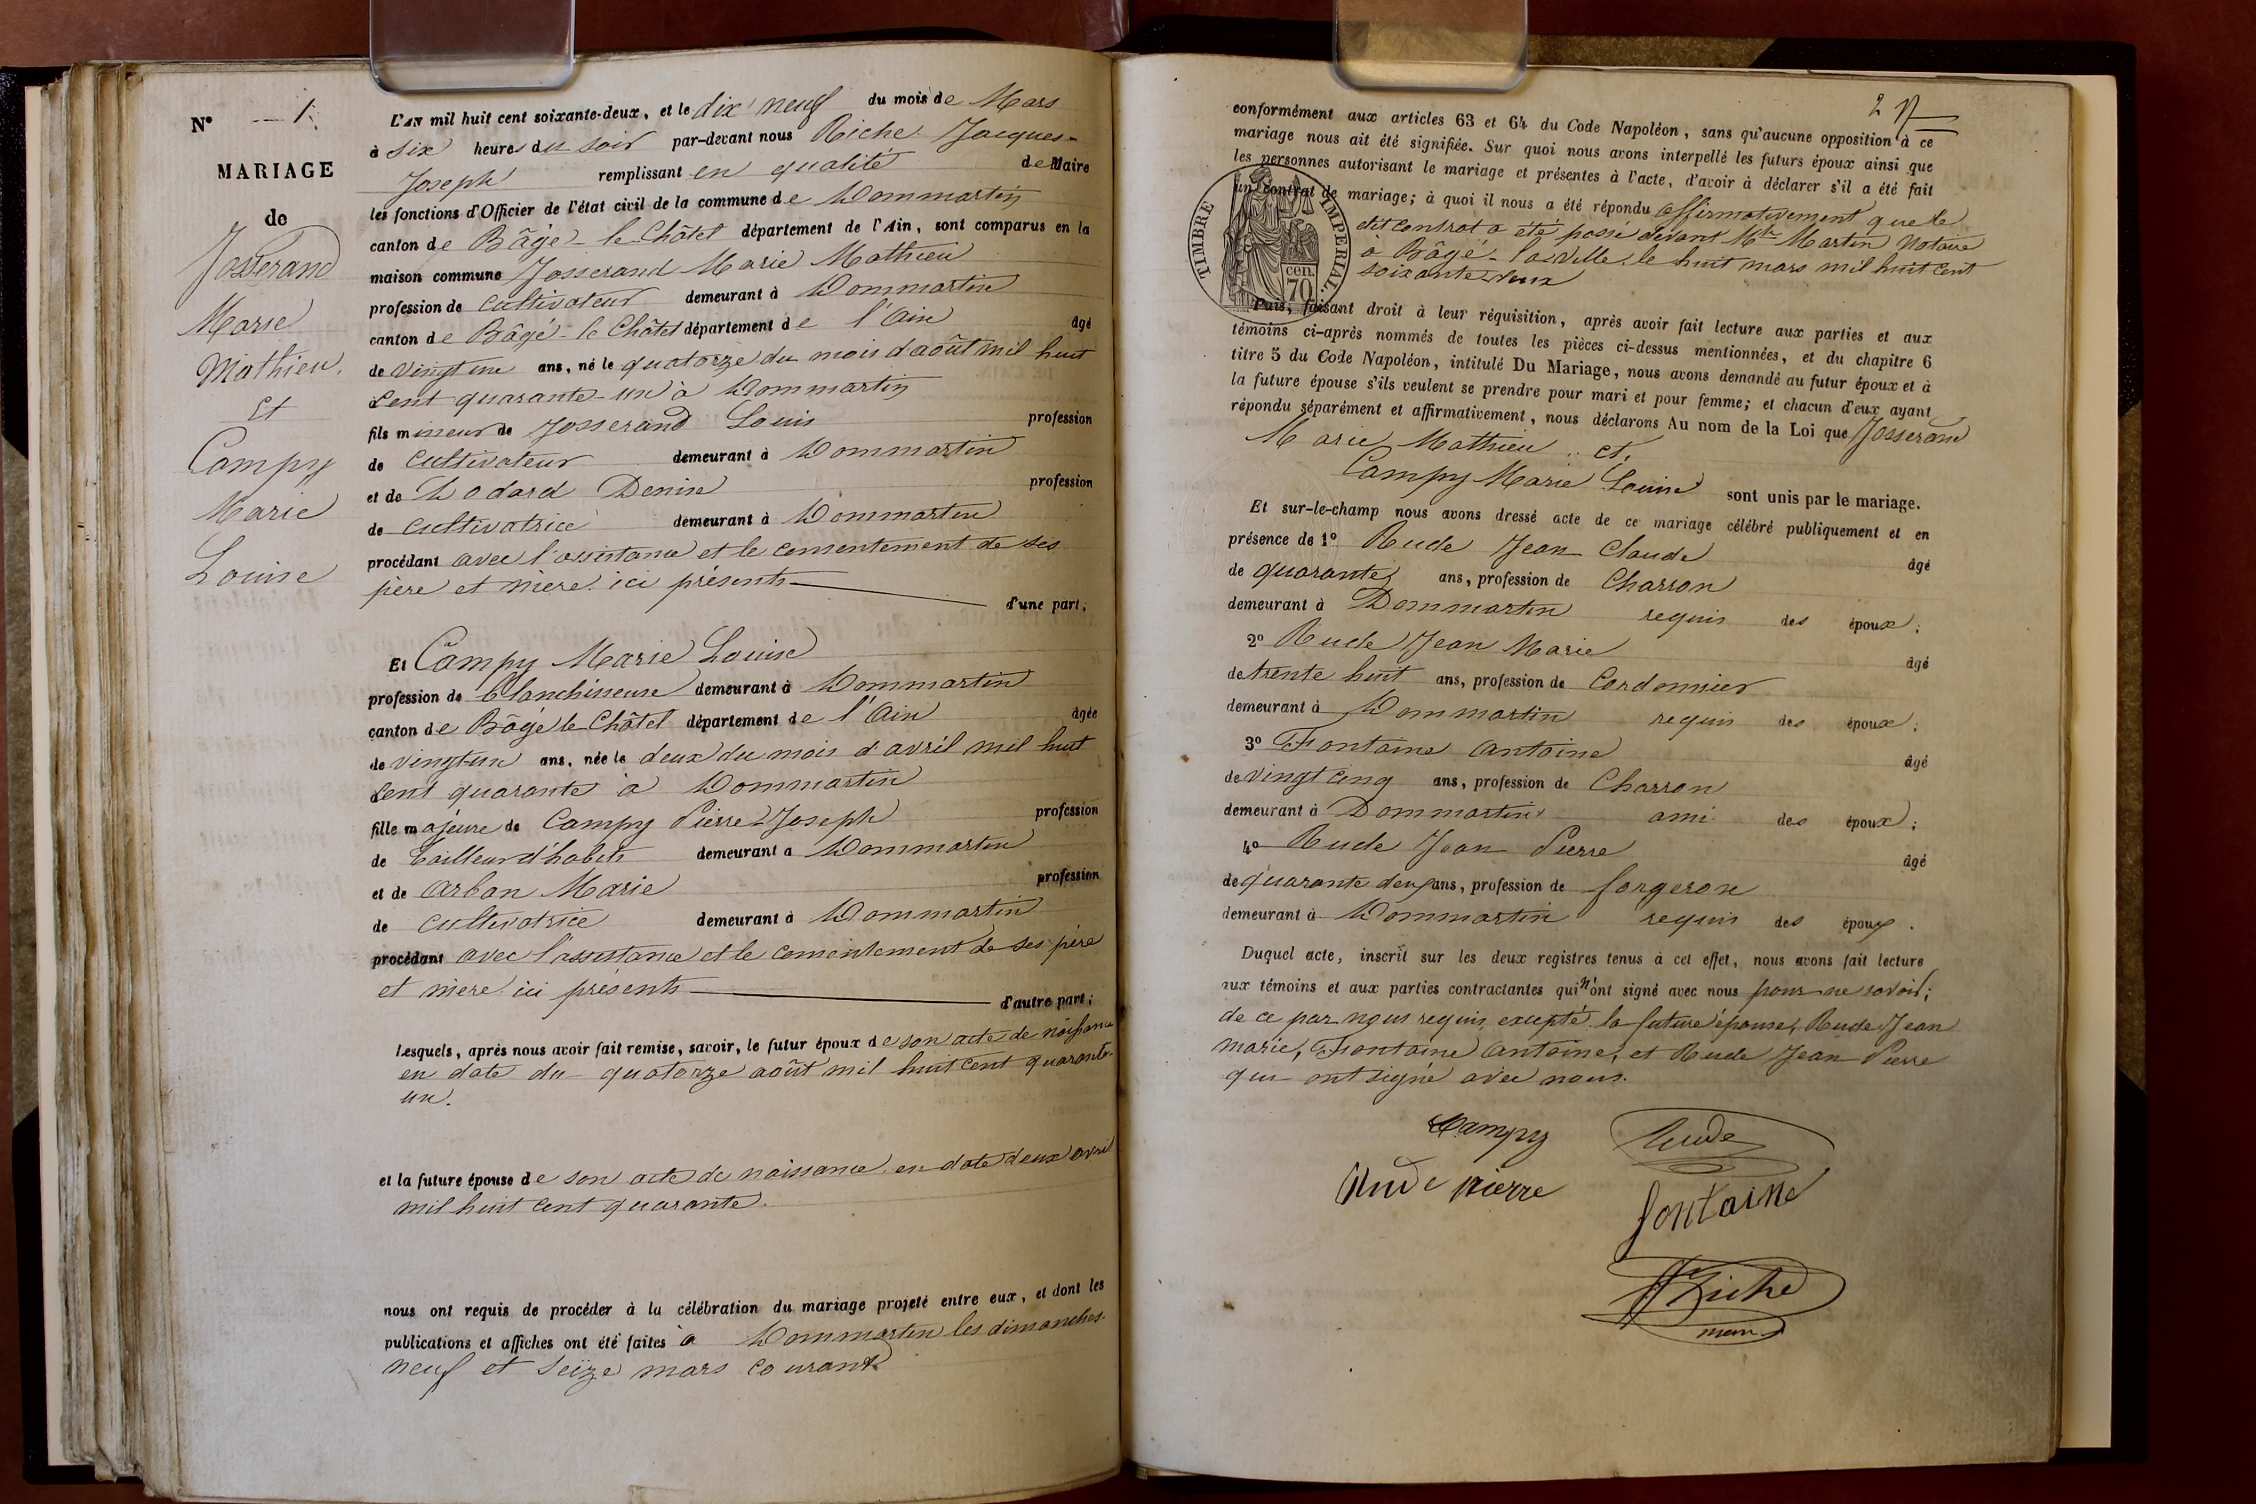 N° 1
MARIAGE
de
Josserand
Marie
Mathieu.
et
Campy
Marie
Louise
L'AN mil huit cent soixante-deux, et le dix neuf du mois de Mars
à six heures du soir par-devant nous Riche Jacques-
Joseph remplissant en qualité de Maire
les fonctions d'Officier de l'état civil de la commune de Dommartin
canton de Bâgé-le-Châtel département de l'Ain, sont comparus en la
maison commune Josserand Marie Mathieu
profession de cultivateur demeurant à Dommartin
canton de Bâgé-le Châtel département de l'Ain âgé
de vingt un ans, né le quatorze du mois d'août mil huit
cent quarante-un à Dommartin
fils mineur de Josserand Louis profession
de cultivateur demeurant à Dommartin
et de Dodard Denise profession
de cultivatrice demeurant à Dommartin
procédant avec l'assistance et le consentement de ses
père et mère ici présents d'une part;
Et Campy Marie Louise
profession de blanchisseuse demeurant à Dommartin
canton de Bâgé le Châtel département de l'Ain âgée
de vingt-un ans, née le deux du mois d'avril mil huit
cent quarante à Dommartin
fille majeure de Campy Pierre Joseph profession
de tailleur d'habits demeurant à Dommartin
et de Arban Marie profession
de cultivatrice demeurant à Dommartin
procédant avec l'assistance et le consentement de ses père
et mère ici présents d'autre part;
Lesquels, après nous avoir fait remise, savoir, le futur époux de son acte de naissance
en date du quatorze août mil huit cent quarante-
un.
et la future épouse de son acte de naissance en date deux avril
mil huit cent quarante.
nous ont requis de procéder à la célébration du mariage projeté entre eux, et dont les
publications et affiches ont été faites à Dommartin les dimanches
neuf et seize mars courant
2
conformément aux articles 63 et 64 du Code Napoléon, sans qu'aucune opposition à ce
mariage nous ait été signifiée. Sur quoi nous avons interpellé les futurs époux ainsi que
les personnes autorisant le mariage et présentes à l'acte, d'avoir à déclarer s'il a été fait
un contrat de mariage; à quoi il nous a été répondu affirmativement que le
dit contrat a été passé devant Me Martin Notaire
à Bâgé-la Ville le huit mars mil huit cent
soixante deux
TIMBRE IMPERIAL.
70 cen.
Puis, faisant droit à leur réquisition, après avoir fait lecture aux parties et aux
témoins ci-après nommés de toutes les pièces ci-dessus mentionnées, et du chapitre 6
titre 5 du Code Napoléon, intitulé Du Mariage, nous avons demandé au futur époux et à
la future épouse s'ils veulent se prendre pour mari et pour femme; et chacun d'eux ayant
répondu séparément et affirmativement, nous déclarons Au nom de la Loi que Josserand
Marie Mathieu et
Campy Marie Louise sont unis par le mariage.
Et sur-le-champ nous avons dressé acte de ce mariage célébré publiquement et en
présence de 1° Rude Jean Claude âgé
de quarante ans, profession de Charron
demeurant à Dommartin requis des époux;
2° Rude Jean Marie âgé
de trente huit ans, profession de Cordonnier
demeurant à Dommartin requis des époux;
3° Fontaine Antoine âgé
de vingt cinq ans, profession de Charron
demeurant à Dommartin ami des époux;
4° Rude Jean Pierre âgé
de quarante deux ans, profession de forgeron
demeurant à Dommartin requis des époux.
Duquel acte, inscrit sur les deux registres tenus à cet effet, nous avons fait lecture
aux témoins et aux parties contractantes qui n'ont signé avec nous pour ne savoir;
de ce par nous requis, excepté la future épouse, Rude Jean
marie, Fontaine Antoine, et Rude Jean Pierre
qui ont signé avec nous.
Campy Rude
Rude pierre
fontaine
Riche
maire